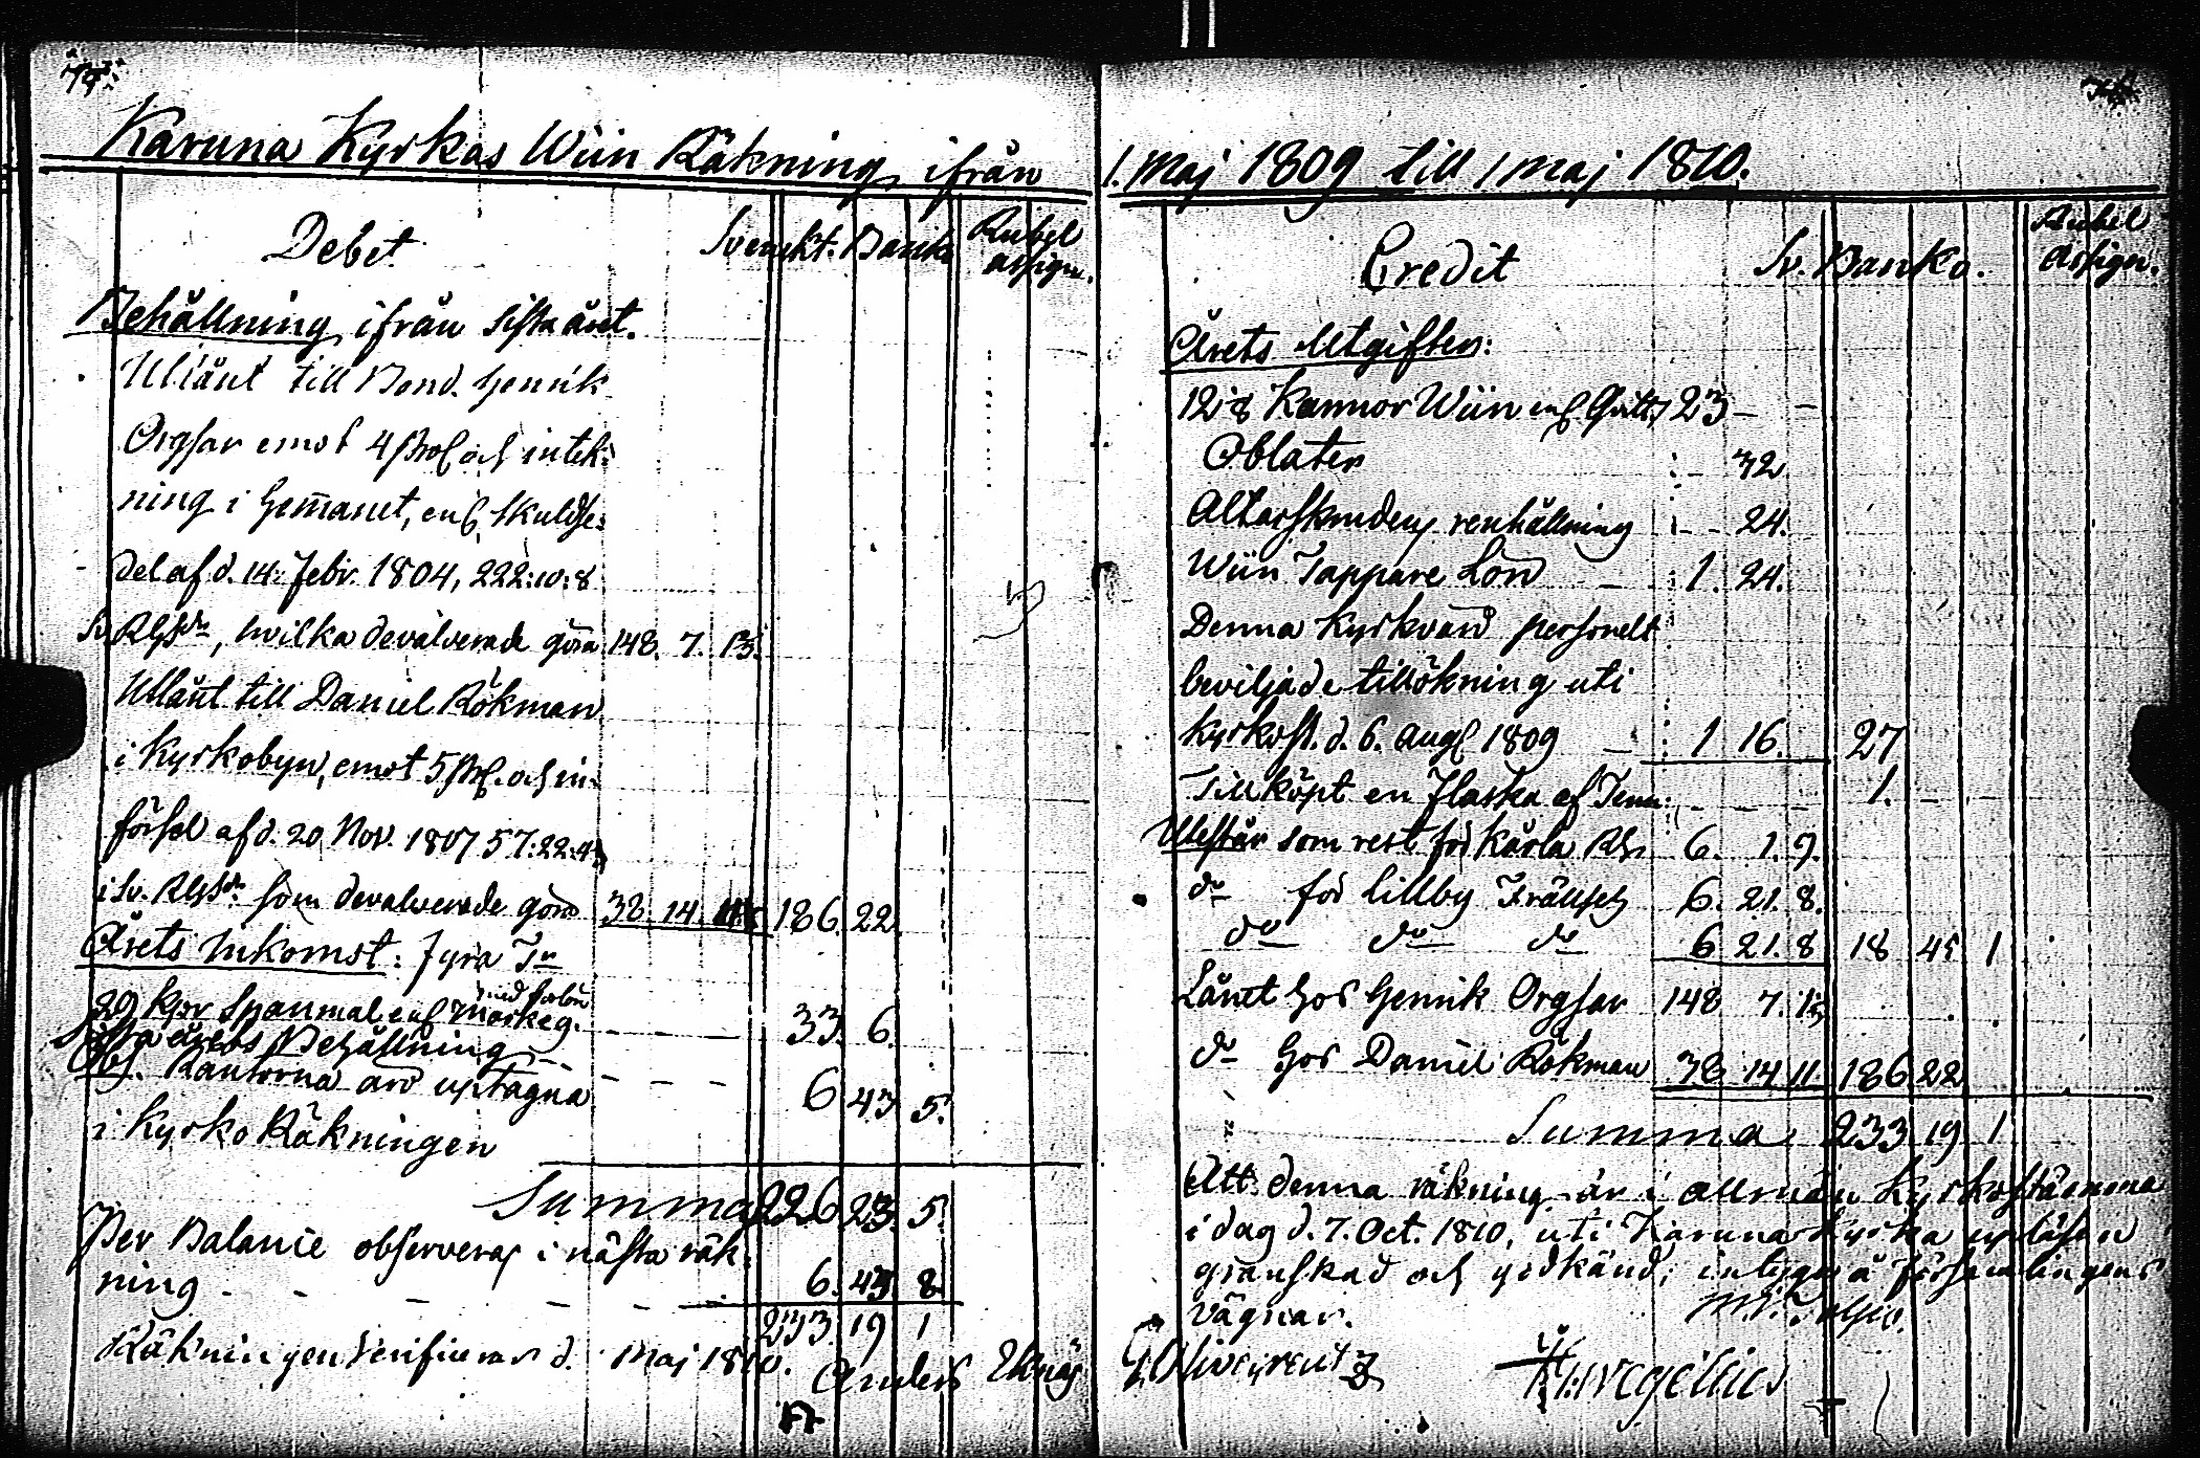 Karuna Kyrkas Wiin Räkning ifrån
Debet
Svenskt. Banko
Rubel
assign.
Behållning ifrån sista året.
Utlånt till Bond. Henrik
Orgsar emot 4 proC. och intek-
ning i Hemanet, enl. skuldse-
del af d. 14. Febr. 1804, 222:10:8
Sv. Rgsdr, hvilka devalverade göra 148. 7.
Utlånt till Daniel Rökman
i Kyrkobyn, emot 5 proC. och in-
försel af d. 20 Nov. 1807 57:22:4
i Sv. Rgsdr. som devalverade göra 38. 14. 186. 22.
Årets Inkomst: Fyra Tr
29 kpr Spanmål enl. markeg. 33. 6.
Sista årets Behållning
Obs. Räntorna äro uptagna 6 43 5.
i Kyrko Räkningen
Summa 226 23. 5.
Per Balance observeras i nästa räk-
ning 6. 43 8.
233 19 1
Räkningen Verifieras d. Maj 1810.
Anders
1. Maj 1809 till 1 Maj 1810.
Credit
Sv. Banko.
Rubel
Assign.
Årets Utgifter:
Kannor Wiin enl. Qvitt. 23 –
Oblater – 32
Altarskrudens renhållning – 24.
Wiin Tappare Lön – 1. 24.
Denna Kyrkvärd personelt
beviljade tillökning uti
Kyrkost. d. 6. Aug. 1809 – 1 16. 27
Tillköpt en Flaska af Tenn: – – – 1.
Utestår som rest för Kärla 6. 1. 9.
do för Lillby Frälsets 6. 21. 8.
do do do 6 21. 8 18 45 1
Lånt hos Henrik Orgsar 148 7.
do hos Daniel Rökman 38 14 11 186 22
Summa 233 19 1
Att denna räkning är i allmän Kyrkostämma
i dag d. 7. Oct. 1810, uti Karuna Kyrka upläsen
granskad och godkänd; intygas å församlingens
vägnar.